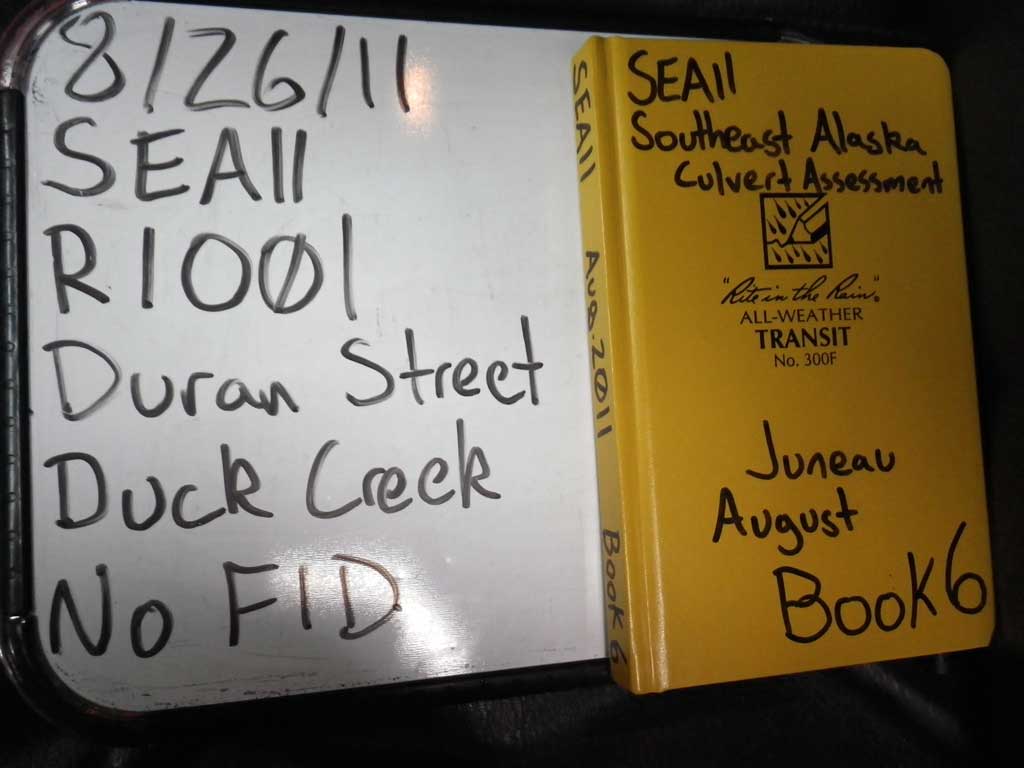 8/26/11
SEA11
R1001
Duran Street
Duck Creek
No FID
SEA11 Aug. 2011 Book 6
SEA11
Southeast Alaska
Culvert Assessment
"Rite in the Rain"®
ALL-WEATHER
TRANSIT
No. 300F
Juneau
August
Book 6